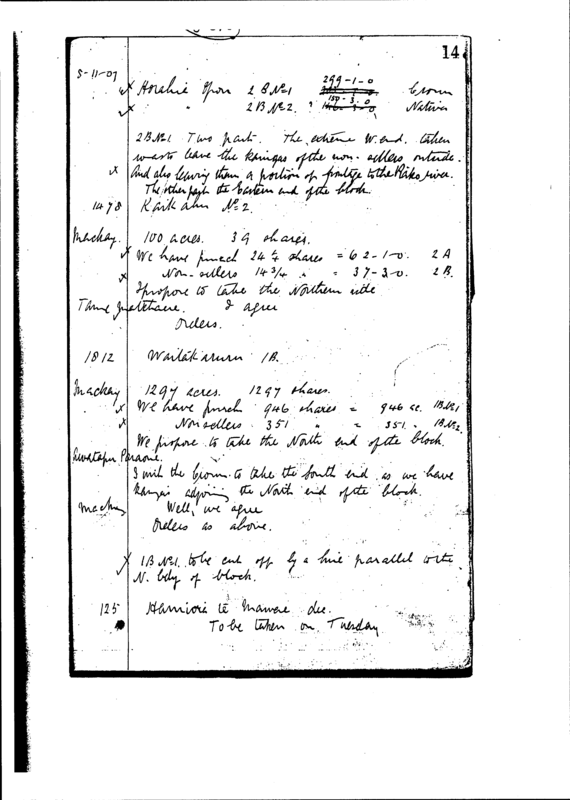 14
5-11-07
x Horahia Opou 2 B No 1 299-1-0 Crown
x " 2 B No 2. " 150-3-0 Natives
2B No 1 Two parts. The extreme W. end, taken
so as to leave the Kaingas of the non-sellers outside.
x And also leaving them a portion of frontage to the Piako river.
The other part the Eastern end of the block.
1478 No 2.
Mackay. 100 acres. 39 shares.
x We have purchd 24 1/4 shares = 62-1-0. 2A
x Non-sellers 14 3/4 " = 37-3-0. 2B.
I propose to take the Northern side
I agree
Orders.
1812 1B.
Mackay 1297 acres. 1297 shares.
x We have purch 946 shares = 946 ac. 1B No 1
x Non sellers 351 " = 351. " 1B No 2
We propose to take the North end of the block.
Paraone.
I wish the Crown to take the South end as we have
Kaingas adjoining the North end of the block.
Mackay Well, we agree
Orders as above.
x 1B No 1. to be cut off by a line parallel to the
N. bdy of block.
125 te dec.
To be taken on Tuesday